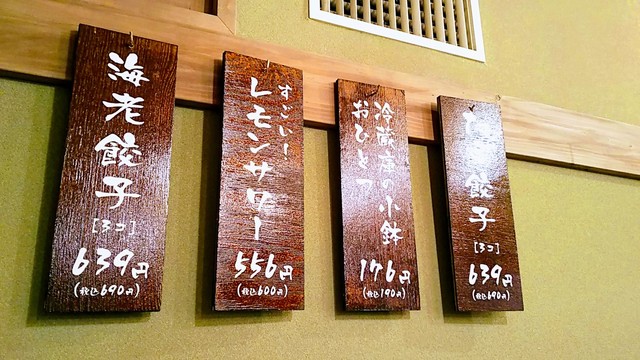 海老餃子
[3コ]
639円
(税込690円)
すごい!
レモンサワー
556円
(税込600円)
冷蔵庫の小鉢
おひとつ
176円
(税込190円)
餃子
[3コ]
639円
(税込690円)